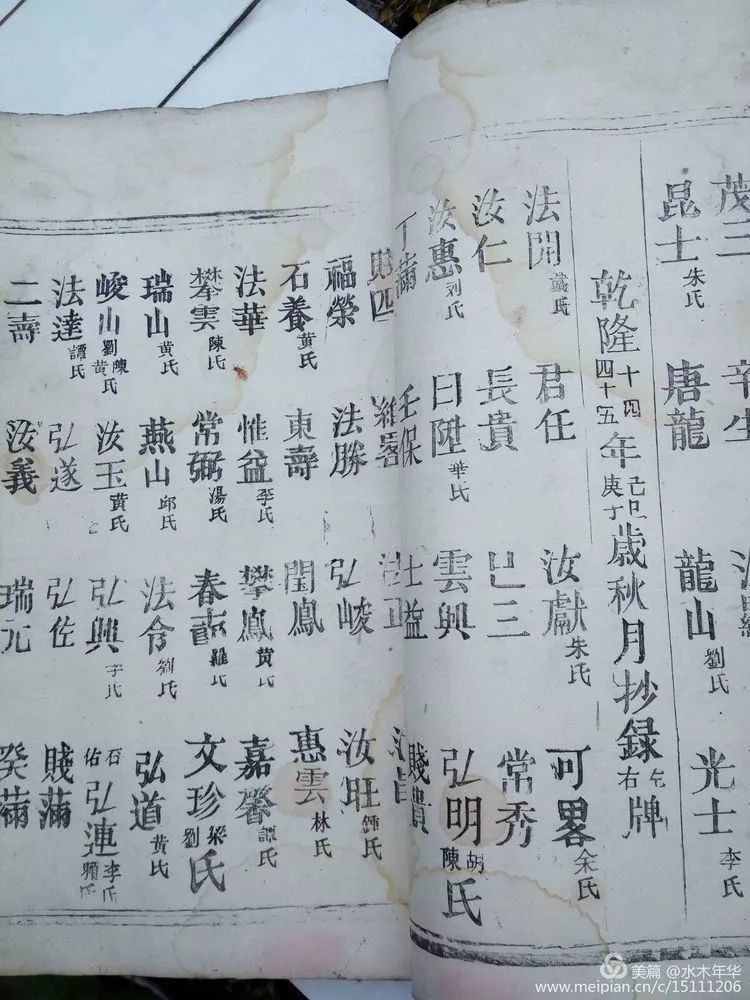 茂三 辛生
昆士朱氏 唐龍 龍山劉氏 光士李氏
乾隆十四四十五年己巳庚丁歲秋月抄録左右牌
法開戴氏 君任 汝獻朱氏 可畧余氏
汝仁 長貴 巳三 常秀
汝惠刘氏 日陞華氏 雲興 弘明胡陳氏
丁滿 壬保 士益 賤貴
福榮 法勝 弘峻 汝旺鍾氏
石養黄氏 東壽 閏鳳 惠雲林氏
法華 惟益李氏 攀鳳黄氏 嘉馨譚氏
攀雲陳氏 常弼湯氏 春壽羅氏 文珍梁劉氏
瑞山黄氏 燕山邱氏 法令劉氏 弘道黄氏
峻山陳劉黄氏 汝玉黄氏 弘興李氏 石佑弘連李氏賴氏
法達譚氏 弘遂 弘佐 賤滿
二壽 汝義 瑞元 癸滿
美篇 @水木年华
www.meipian.cn/c/15111206